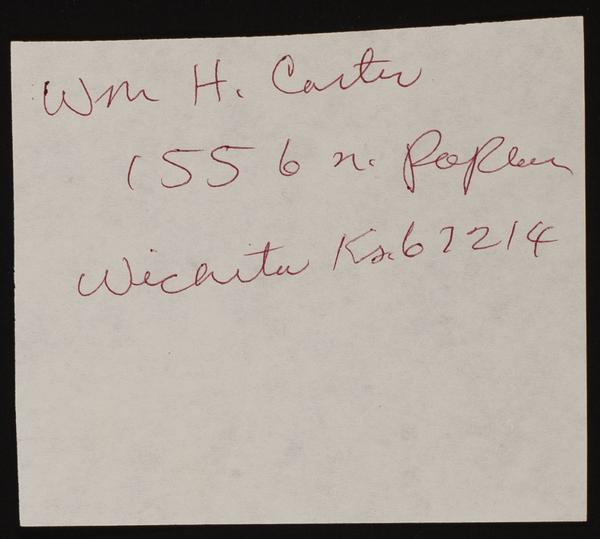 Wm H. Carter
1556 n. Poplar
Wichita Ks. 67214